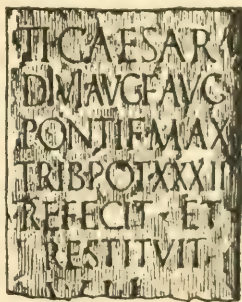 TI·CAESAR
DIVI AVG F AVG
PONTIF·MAX
TRIB POT XXXII
REFECIT·ET
RESTITVIT·